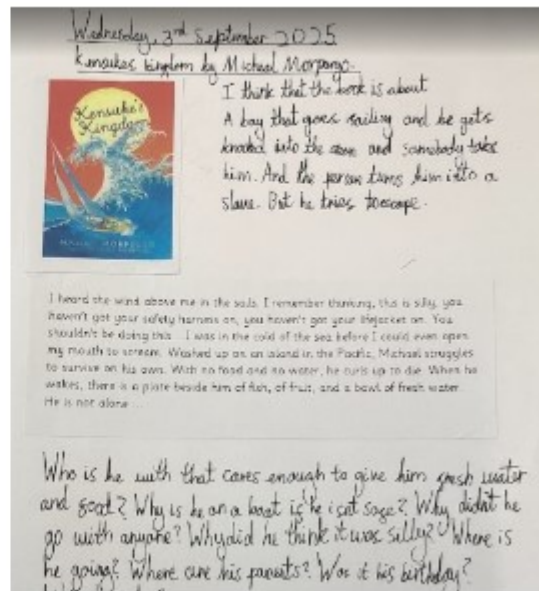 Wednesday, 3rd September 2025
Kensukes kingdom by Micheal Morpurgo.
I think that the book is about
A boy that goes sailing and he gets
knocked into the and somebody takes
him. And the person turns him into a
slave. But he tries to escape.
Kensuke's
Kingdom
I heard the wind above me in the sails. I remember thinking, this is silly, you
haven't got your safety harness on, you haven't got your lifejacket on. You
shouldn't be doing this... I was in the cold of the sea before I could even open
my mouth to scream. Washed up on an island in the Pacific, Michael struggles
to survive on his own. With no food and no water, he curls up to die. When he
wakes, there is a plate beside him of fish, of fruit, and a bowl of fresh water.
He is not alone...
Who is he with that cares enough to give him fresh water
and food? Why is he on a boat is he safe? Why didn't he
go with anyone? Why did he think it was silly? Where is
he going? Where are his parents? Was it his birthday?